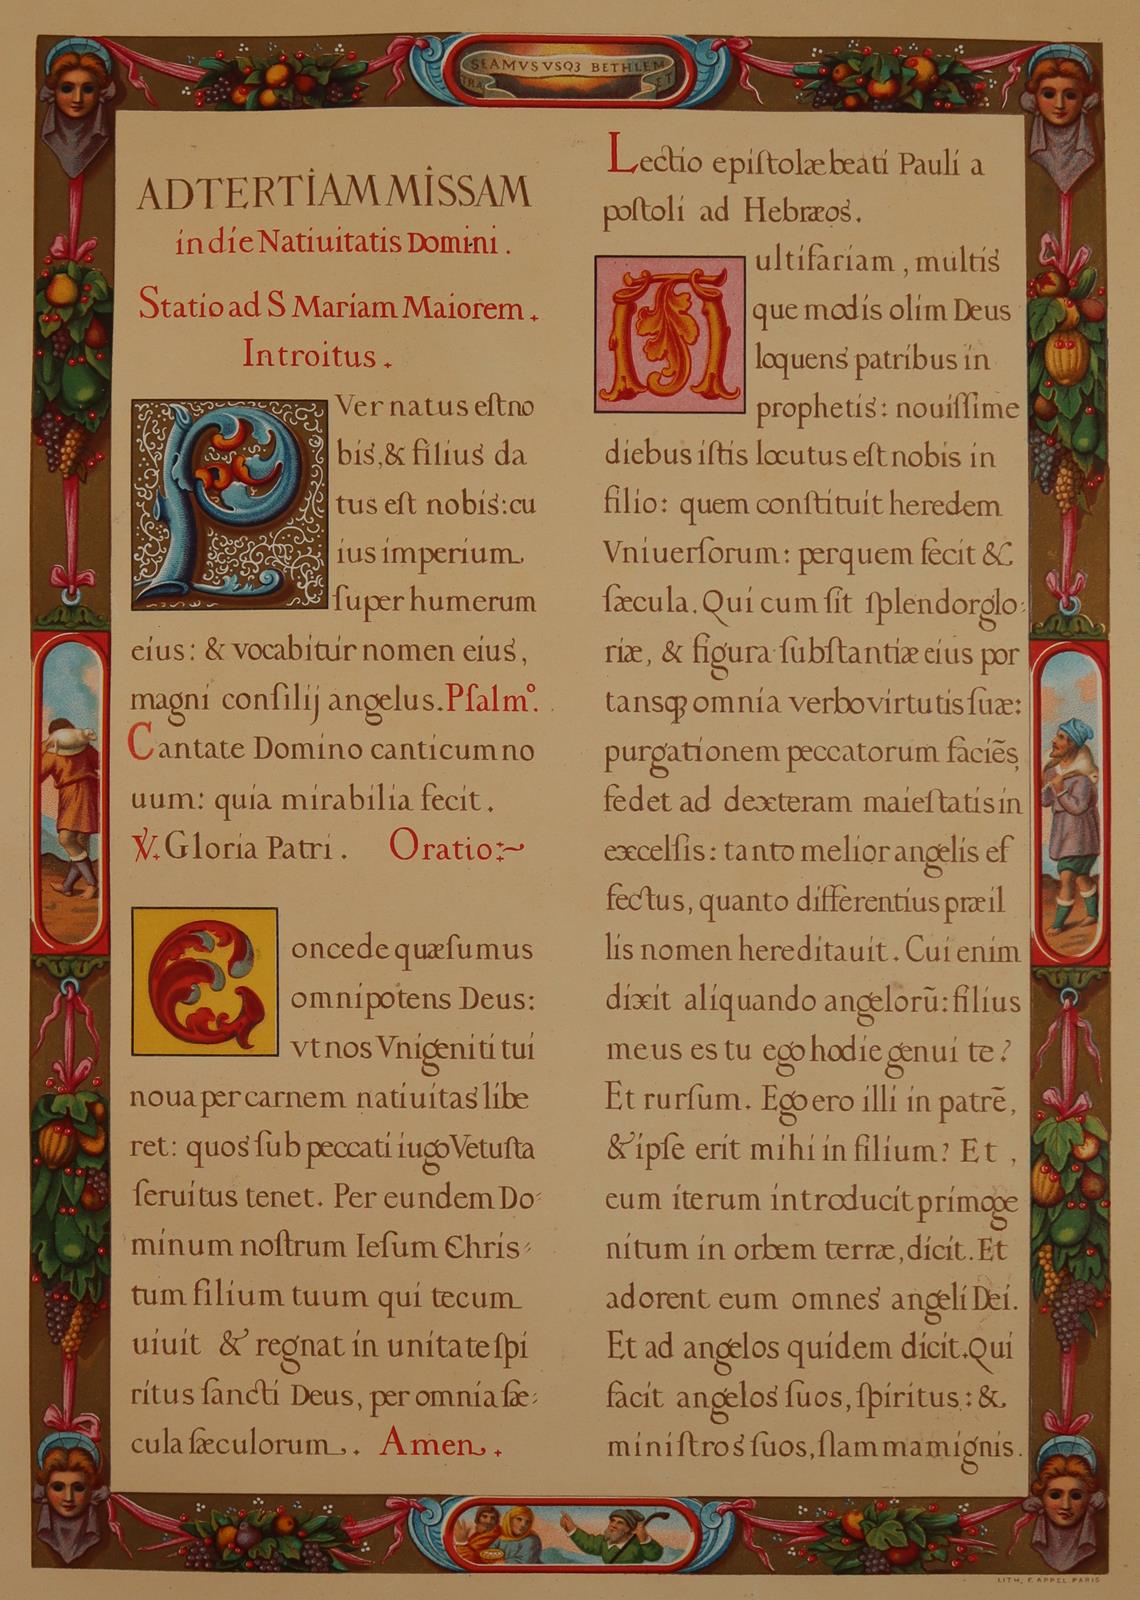 TRA SEAMVS VSQ3 BETHLEM ET
AD TERTIAM MISSAM
in die Natiuitatis Domini.
Statio ad S Mariam Maiorem.
Introitus.
PVer natus eſt no
bis, & filius da
tus eſt nobis: cu
ius imperium
ſuper humerum
eius: & vocabitur nomen eius,
magni conſilij angelus. Pſalm⁰.
Cantate Domino canticum no
uum: quia mirabilia fecit.
℣. Gloria Patri. Oratio:~
Concede quæſumus
omnipotens Deus:
vt nos Vnigeniti tui
noua per carnem natiuitas libe
ret: quos ſub peccati iugo Vetuſta
ſeruitus tenet. Per eundem Do-
minum noſtrum Ieſum Chris-
tum filium tuum qui tecum
uiuit & regnat in unitate ſpi
ritus ſancti Deus, per omnia ſæ-
cula ſæculorum. Amen.
Lectio epiſtolæ beati Pauli a
poſtoli ad Hebræos.
Multifariam, multis
que modis olim Deus
loquens patribus in
prophetis: nouiſſime
diebus iſtis locutus eſt nobis in
filio: quem conſtituit heredem
Vniuerſorum: per quem fecit &
ſæcula. Qui cum ſit ſplendor glo-
riæ, & figura ſubſtantiæ eius por
tansꝙ omnia verbo virtutis ſuæ:
purgationem peccatorum faciẽs,
ſedet ad dexteram maieſtatis in
excelſis: tanto melior angelis ef
fectus, quanto differentius præ il
lis nomen hereditauit. Cui enim
dixit aliquando angelorũ: filius
meus es tu ego hodie genui te?
Et rurſum. Ego ero illi in patrẽ,
& ipſe erit mihi in filium? Et,
cum iterum introducit primoge
nitum in orbem terræ, dicit. Et
adorent eum omnes angeli Dei.
Et ad angelos quidem dicit. Qui
facit angelos ſuos, ſpiritus: &
miniſtros ſuos, flammam ignis.
LITH. F. APPEL. PARIS